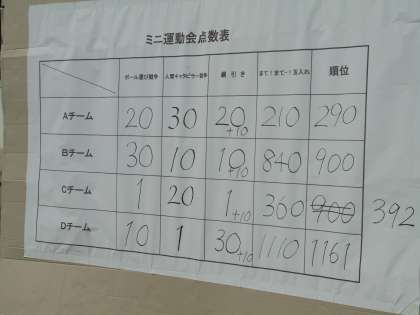 ミニ運動会点数表
ボール運び競争 人間キャタピラー競争 綱引き まて!まて~!玉入れ 順位
Aチーム 20 30 20+10 210 290
Bチーム 30 10 10+10 840 900
Cチーム 1 20 1+10 360 900 392
Dチーム 10 1 30+10 1110 1161